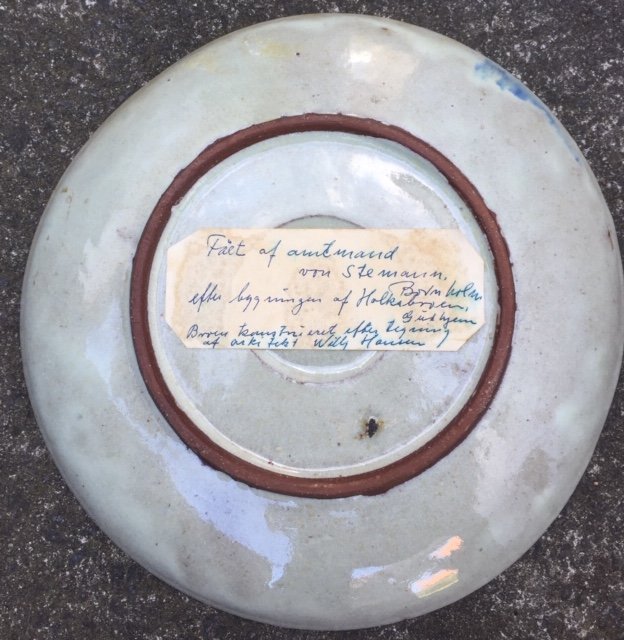 Fået af amtmand
von Stemann,
Bornholm
efter bygningen af Holkabroen,
Gudhjem
Broen konstrueret efter tegning
af arkitekt Willy Hansen